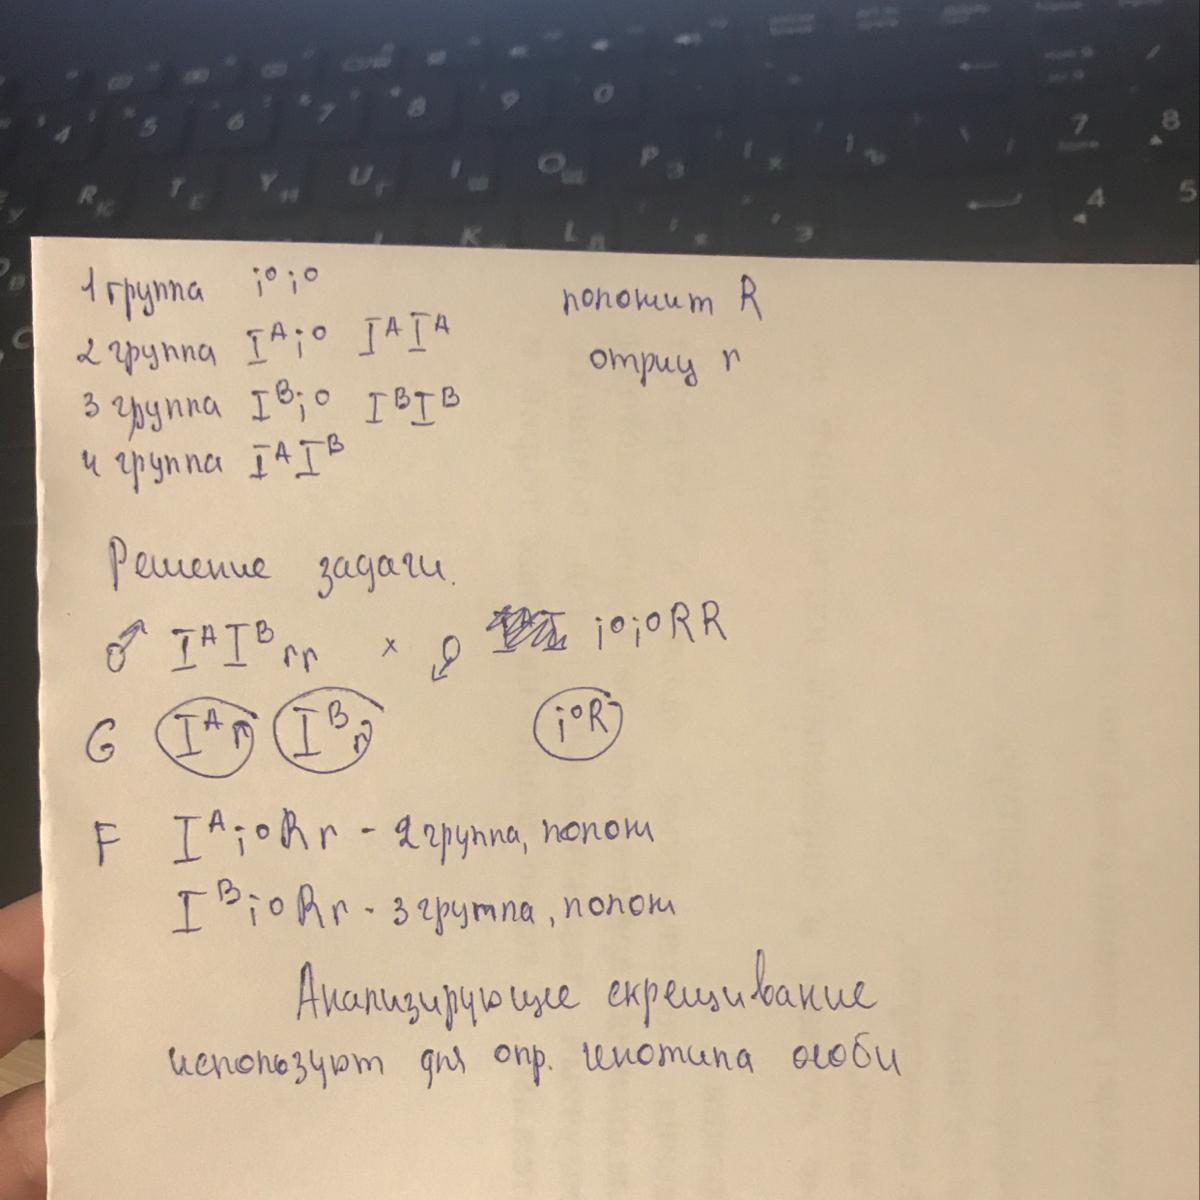 1 группа i⁰i⁰
положит R
2 группа Iᴬi⁰ IᴬIᴬ
отриц r
3 группа Iᴮi⁰ IᴮIᴮ
4 группа IᴬIᴮ
Решение задачи.
♂ IᴬIᴮrr × ♀ i⁰i⁰RR
G Iᴬr Iᴮr i⁰R
F Iᴬi⁰Rr - 2 группа, полож
Iᴮi⁰Rr - 3 группа, полож
Анализирующее скрещивание
используют для опр. генотипа особи